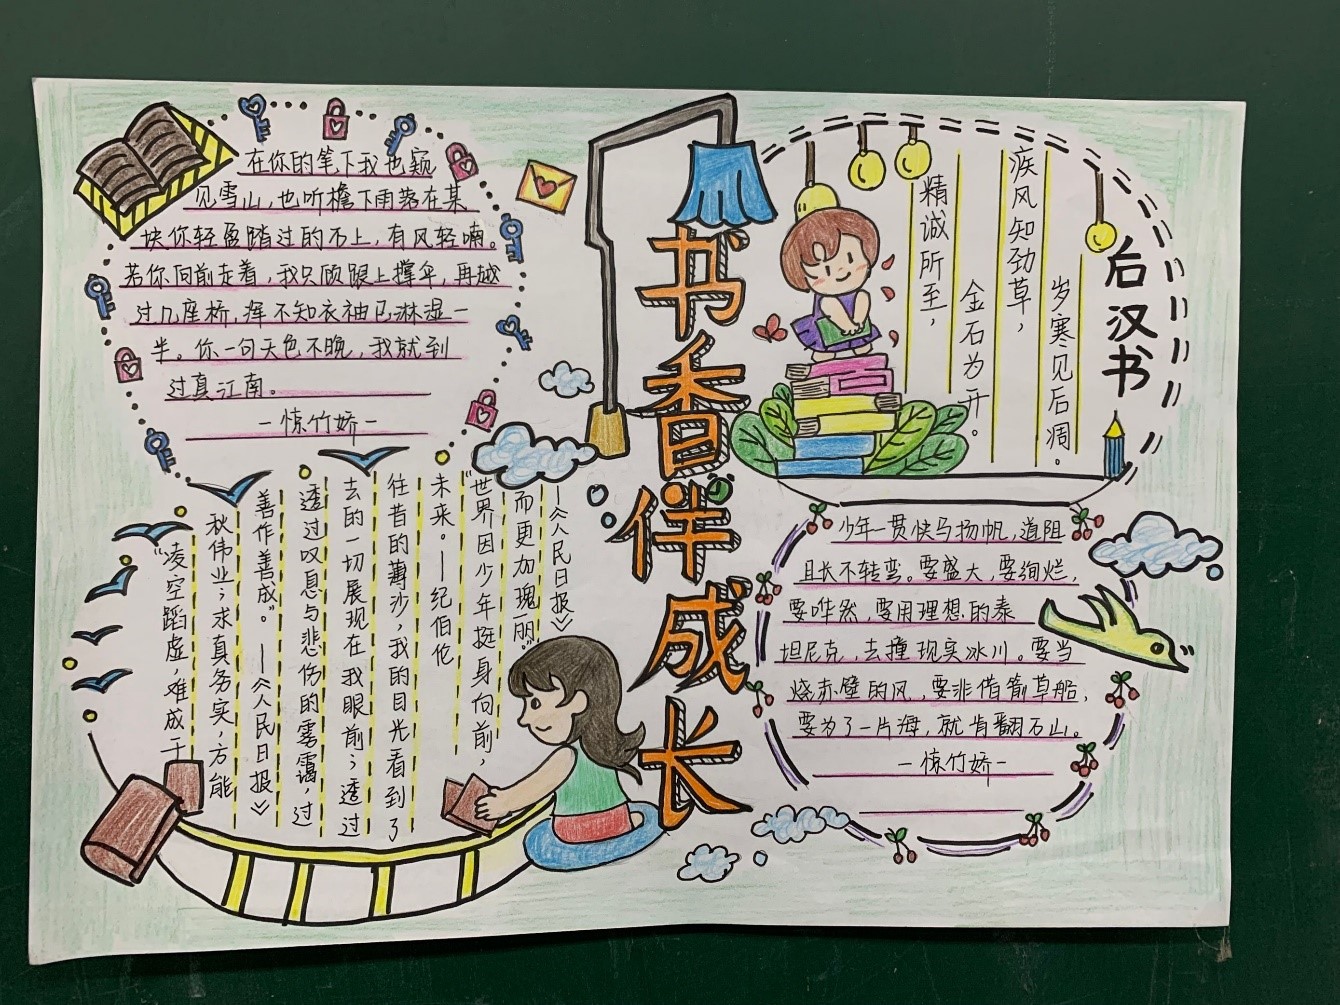 书香伴成长
在你的笔下我也窥
见雪山,也听檐下雨落在某
块你轻盈踏过的石上,有风轻喃。
若你向前走着,我只顾跟上撑伞,再越
过几座桥,浑不知衣袖已淋湿一
半。你一句天色不晚,我就到
过真江南。
-惊竹娇-
后汉书
精诚所至,
金石为开。
疾风知劲草,
岁寒见后凋。
"凌空蹈虚,难成千
秋伟业;求真务实,方能
善作善成"。—《人民日报》
透过叹息与悲伤的雾霭,过
去的一切展现在我眼前;透过
往昔的薄沙,我的目光看到了
未来。—纪伯伦
"世界因少年挺身向前,
而更加瑰丽"
—《人民日报》
少年一贯快马扬帆,道阻
且长不转弯。要盛大,要绚烂,
要哗然,要用理想的泰
坦尼克,去撞现实冰川。要当
烧赤壁的风,要非借箭草船,
要为了一片海,就肯翻万山。
-惊竹娇-